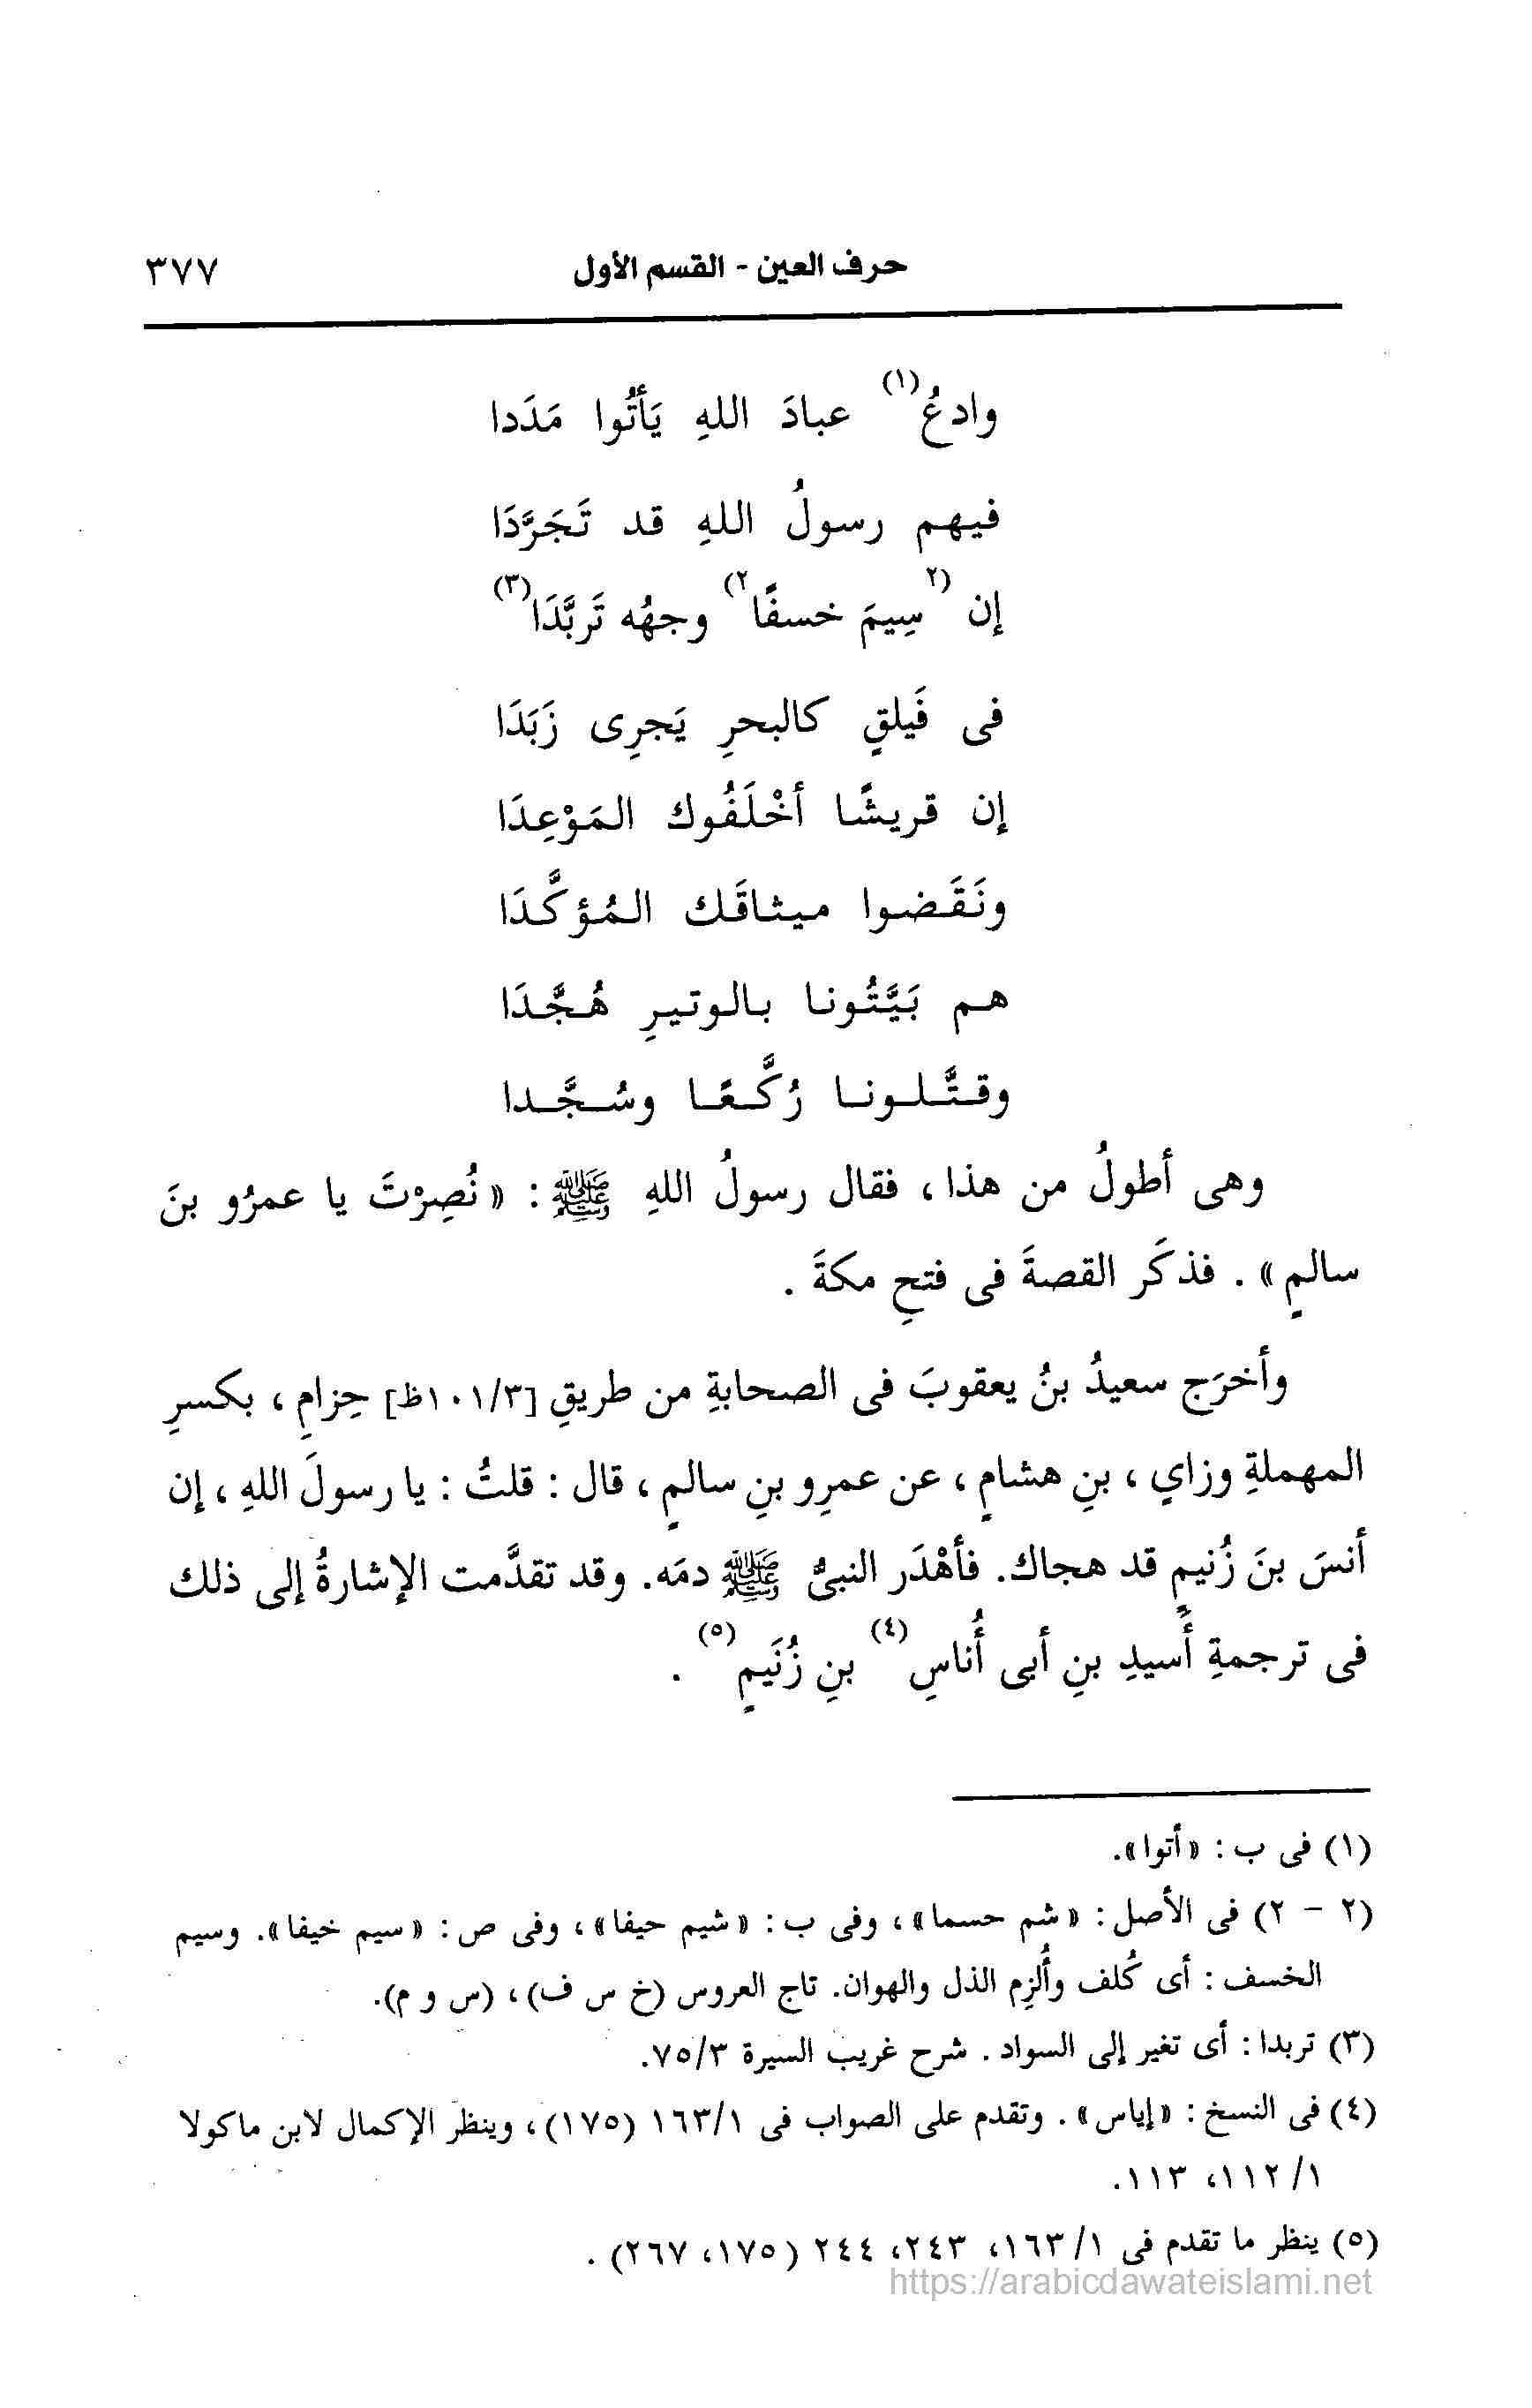 حرف العين - القسم الأول ٣٧٧
وادعُ(١) عبادَ اللهِ يَأتُوا مَدَدا
فيهم رسولُ اللهِ قد تَجَرَّدَا
إن ٢)سِيمَ خسفًا٢) وجهُه تَربَّدَا(٣)
فى فَيلقٍ كالبحرِ يَجرِى زَبَدَا
إن قريشًا أخْلَفُوك المَوْعِدَا
ونَقَضوا ميثاقَك المُؤكَّدَا
هم بَيَّتُونا بالوتيرِ هُجَّدَا
وقتَّلونا رُكَّعًا وسُجَّدا
وهى أطولُ من هذا، فقال رسولُ اللهِ ﷺ: «نُصِرْتَ يا عمرُو بنَ
سالمٍ». فذكَر القصةَ فى فتحِ مكةَ.
وأخرَج سعيدُ بنُ يعقوبَ فى الصحابةِ من طريقِ [١٠١/٣ظ] حِزامِ، بكسرِ
المهملةِ وزاىٍ، بنِ هشامٍ، عن عمرِو بنِ سالمٍ، قال: قلتُ: يا رسولَ اللهِ، إن
أنسَ بنَ زُنيمٍ قد هجاك. فأهْدَر النبىُّ ﷺ دمَه. وقد تقدَّمت الإشارةُ إلى ذلك
فى ترجمةِ أَسيدِ بنِ أبى أُناسِ(٤) بنِ زُنَيمٍ(٥).
(١) فى ب: «أتوا».
(٢ - ٢) فى الأصل: «شم حسما»، وفى ب: «شيم حيفا»، وفى ص: «سيم خيفا». وسيم
الخسف: أى كُلف وأُلزِم الذل والهوان. تاج العروس (خ س ف)، (س و م).
(٣) تربدا: أى تغير إلى السواد. شرح غريب السيرة ٧٥/٣.
(٤) فى النسخ: «إياس». وتقدم على الصواب فى ١٦٣/١ (١٧٥)، وينظر الإكمال لابن ماكولا
١/ ١١٢، ١١٣.
(٥) ينظر ما تقدم فى ١/ ١٦٣، ٢٤٣، ٢٤٤ (١٧٥، ٢٦٧).
https://arabicdawateislami.net